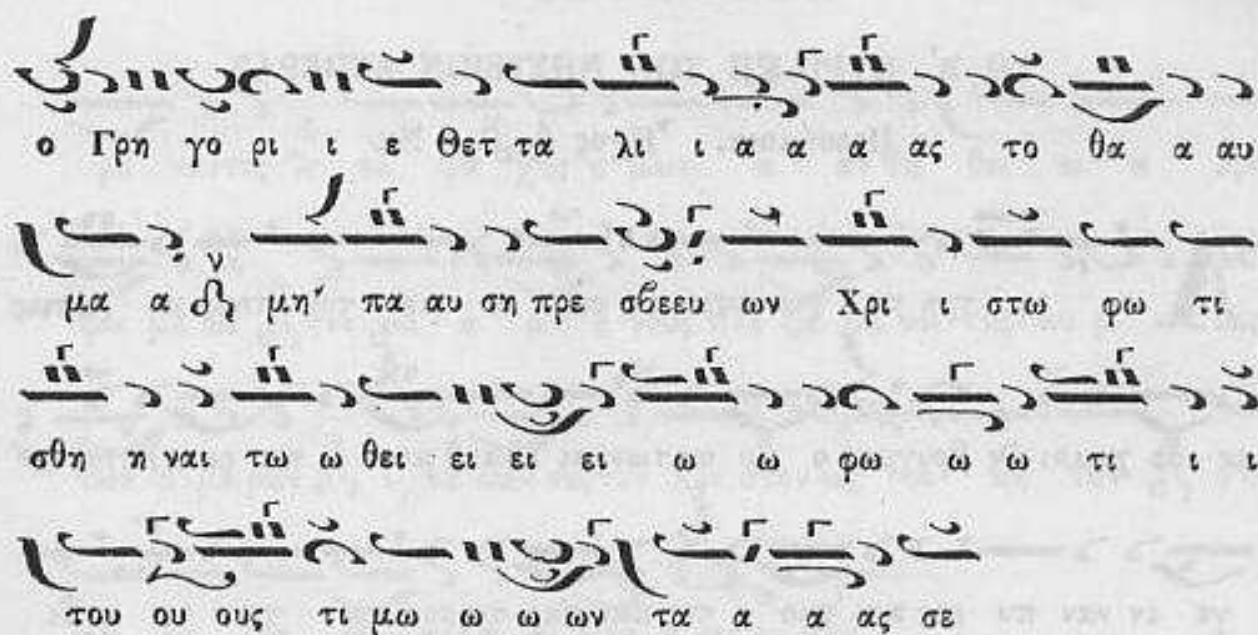 ο Γρη γο ρι ι ε Θετ τα λι ι α α α ας το θα α αυ
μα α μη΄ πα αυ ση πρε σβεευ ων Χρι ι στω φω τι
σθη η ναι τω ω θει ει ει ει ω ω φω ω ω τι ι ι
του ου ους τι μω ω ω ων τα α α ας σε